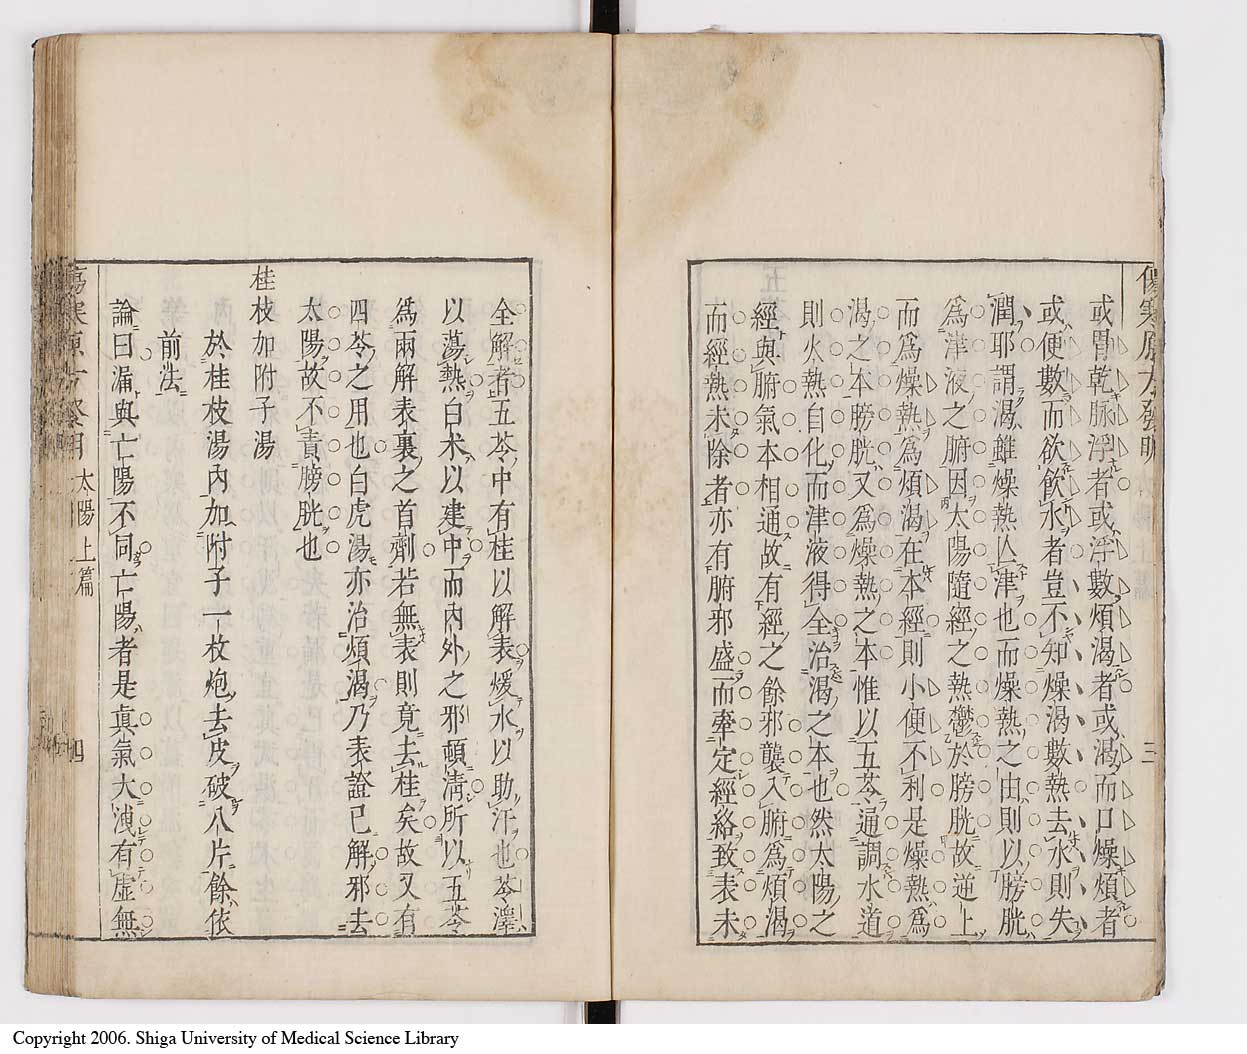 傷寒原方發明
三
或胃乾脉浮者或浮數煩渴者或渴而口燥煩者
或便數而欲飮水者豈不知燥渴數熱去水則失
潤耶謂渴雖燥熱亾津也而燥熱之由則以膀胱
爲津液之腑因太陽隨經之熱鬱於膀胱故逆上
而爲燥熱爲煩渴在本經則小便不利是燥熱爲
渴之本膀胱又爲燥熱之本惟以五苓通調水道
則火熱自化而津液得全治渴之本也然太陽之
經與腑氣本相通故有經之餘邪襲入腑爲煩渴
而經熱未除者亦有腑邪盛而牽定經絡致表未
全解者五苓中有桂以解表煖水以助汗也苓澤
以蕩熱白术以建中而內外之邪頓淸所以五苓
爲兩解表裏之首劑若無表則竟去桂矣故又有
四苓之用也白虎湯亦治煩渴乃表證已解邪去
太陽故不責膀胱也
桂枝加附子湯
於桂枝湯內加附子一枚炮去皮破八片餘依
前法
論曰漏與亡陽不同亡陽者是眞氣大洩有虛無
傷寒原方發明 太陽上篇
四
Copyright 2006. Shiga University of Medical Science Library